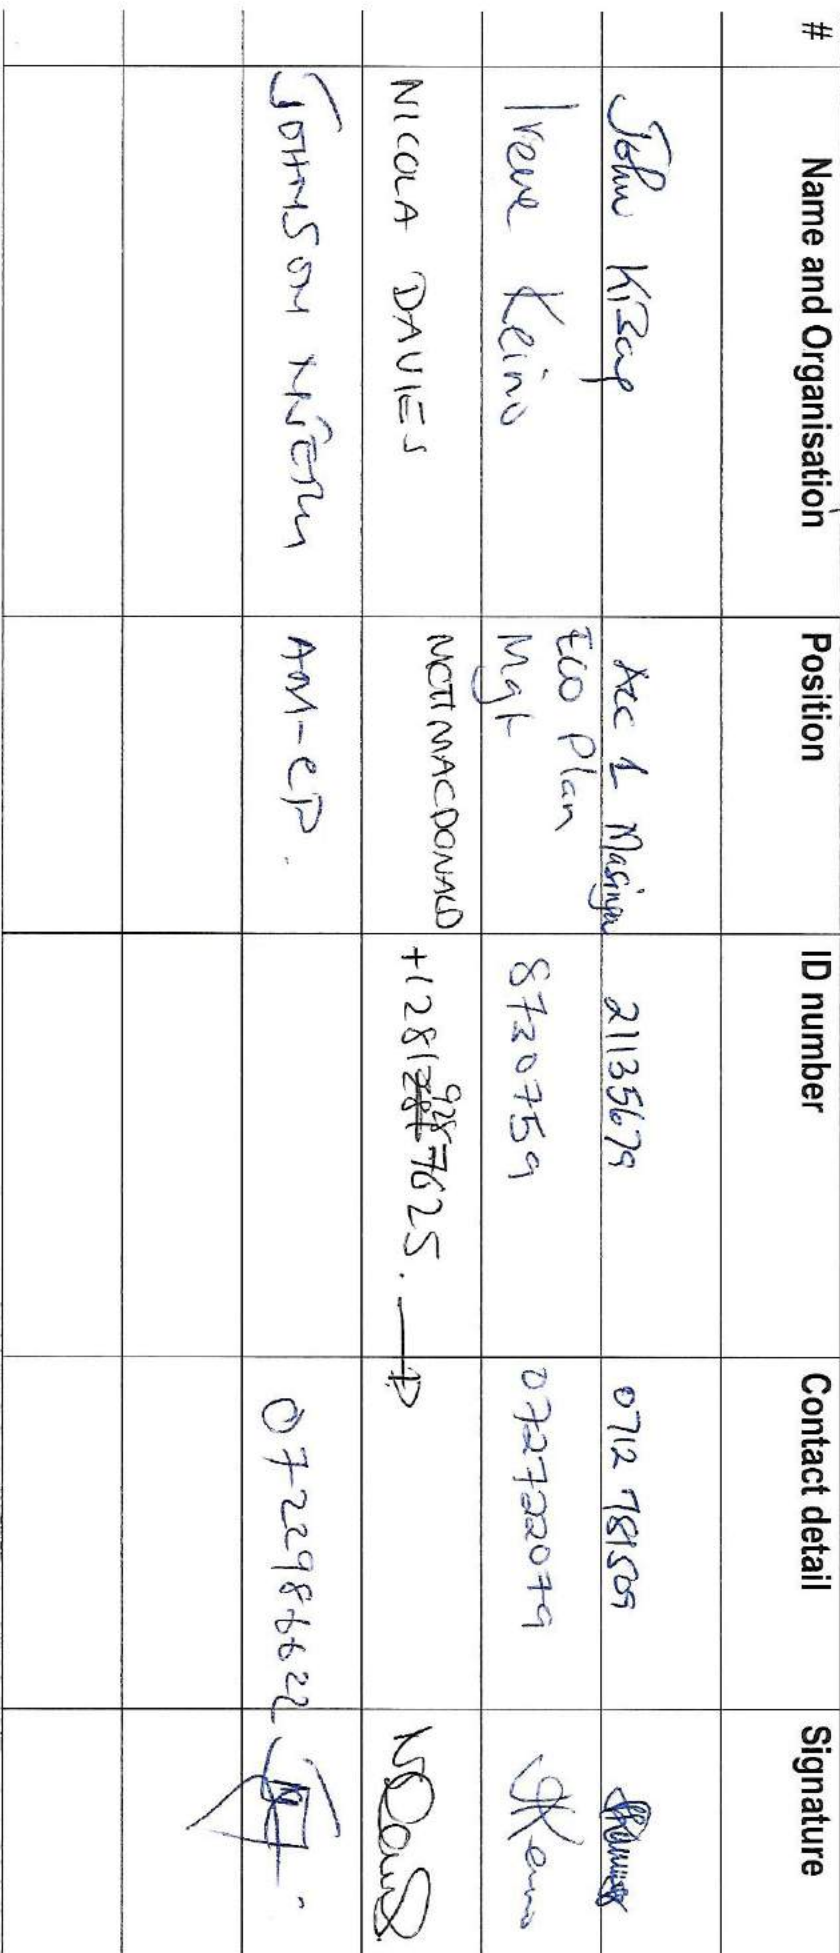 # Name and Organisation Position ID number Contact detail Signature
John Kibap Acc 1 Masinga 21135679 0712 781509
Irene Keino Eco Plan Mgt 8730759 0727722079 JKeino
NICOLA DAVIES MOTTMACDONALD +1281 928 7625. NDavies
JOHNSON AM-CP. 0722986622